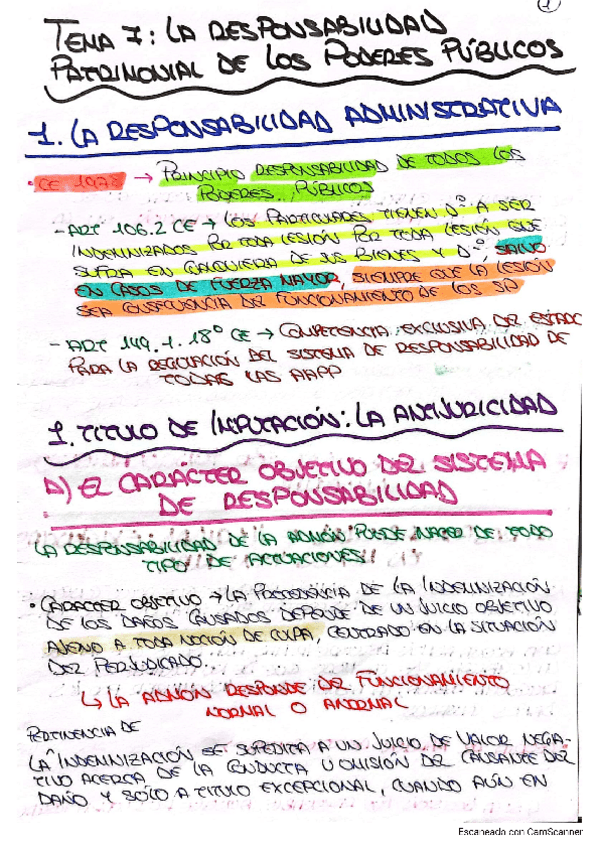 1
TEMA 7: LA RESPONSABILIDAD
PATRIMONIAL DE LOS PODERES PÚBLICOS
1. LA RESPONSABILIDAD ADMINISTRATIVA
· CE 1978 → PRINCIPIO RESPONSABILIDAD DE TODOS LOS
PODERES PÚBLICOS
- ART 106.2 CE → LOS PARTICULARES TIENEN Dº A SER
INDEMNIZADOS POR TODA LESIÓN POR TODA LESIÓN QUE
SUFRA EN CUALQUIERA DE SUS BIENES Y Dº, SALVO
EN CASOS DE FUERZA MAYOR, SIEMPRE QUE LA LESIÓN
SEA CONSECUENCIA DEL FUNCIONAMIENTO DE LOS SP
- ART 149.1.18º CE → COMPETENCIA EXCLUSIVA DEL ESTADO
PARA LA REGULACIÓN DEL SISTEMA DE RESPONSABILIDAD DE
TODAS LAS AAPP
1. TITULO DE IMPUTACIÓN: LA ANTIJURICIDAD
A) EL CARÁCTER OBJETIVO DEL SISTEMA
DE RESPONSABILIDAD
LA RESPONSABILIDAD DE LA ADMÓN PUEDE NACER DE TODO
TIPO DE ACTUACIONES
· CARÁCTER OBJETIVO → LA PROCEDENCIA DE LA INDEMNIZACIÓN
DE LOS DAÑOS CAUSADOS DEPENDE DE UN JUICIO OBJETIVO
AJENO A TODA NOCIÓN DE CULPA, CENTRADO EN LA SITUACIÓN
DEL PERJUDICADO.
↳ LA ADMÓN RESPONDE DEL FUNCIONAMIENTO
NORMAL O ANORMAL
PERTINENCIA DE
LA ^ INDEMNIZACIÓN SE SUPEDITA A UN JUICIO DE VALOR NEGA-
TIVO ACERCA DE LA CONDUCTA U OMISIÓN DEL CAUSANTE DEL
DAÑO Y SÓLO A TITULO EXCEPCIONAL, CUANDO AÚN EN
Escaneado con CamScanner